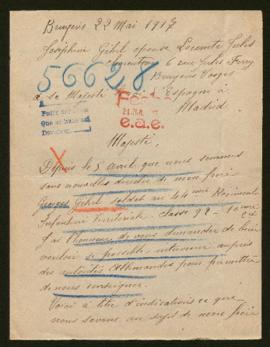 Bruyères 22 Mai 1917
Joséphine Gehel épouse Lecomte Jules
6 rue Jules Ferry
Bruyères Vosges
56628
a sa Majesté Espagne à
Madrid
e.a.e.
Majesté,
X
Depuis le 5 avril que nous sommes
sans nouvelles de mon frère
Georges Gehel soldat au
Infanterie Territoriale classe
J'ai l'honneur de vous demander de bien
vouloir si possible intervenir auprès
des autorités Allemandes pour permettre
de nous renseigner.
Voici à titre d'indications ce que
nous savons au sujet de mon frère